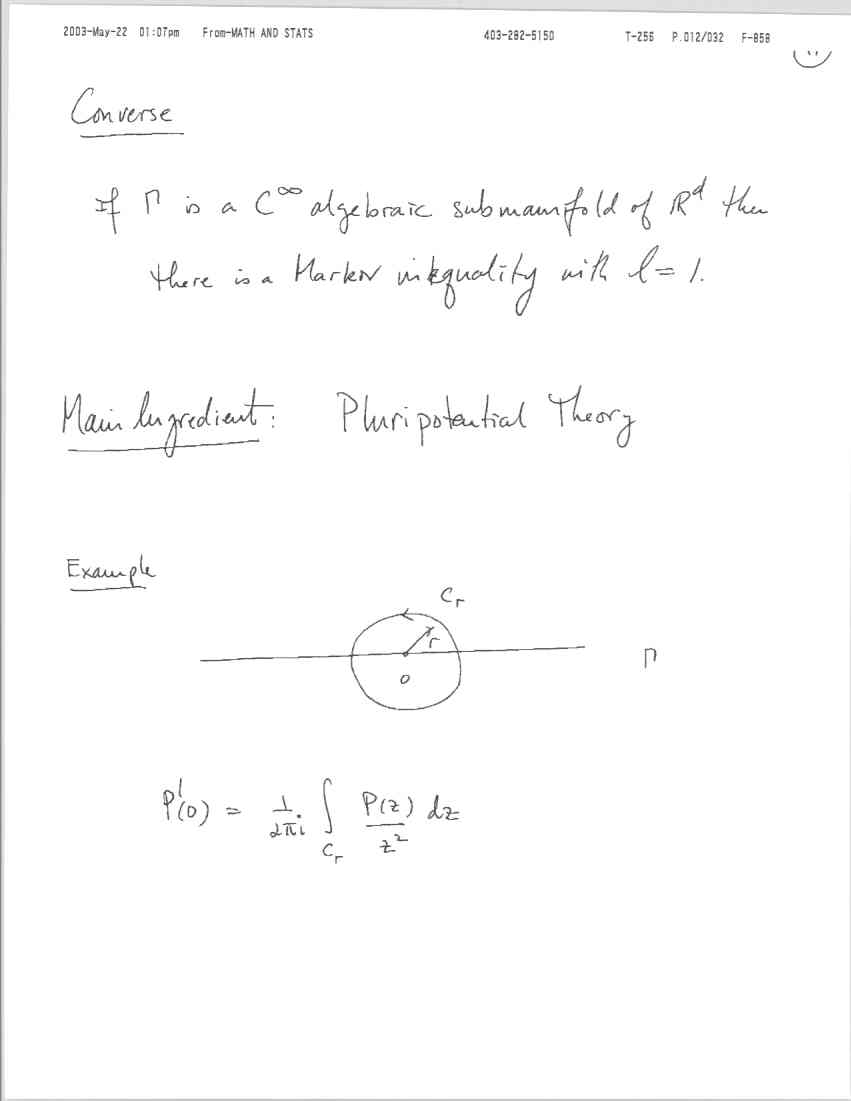 2003-May-22 01:07pm From-MATH AND STATS 403-282-5150 T-256 P.012/032 F-858
Converse
If Γ is a C^∞ algebraic submanifold of R^d then
there is a Markov inequality with l = 1.
Main Ingredient: Pluripotential Theory
Example
C_r
r
Γ
0
P'(0) = 1/2πi ∫_{C_r} P(z)/z² dz